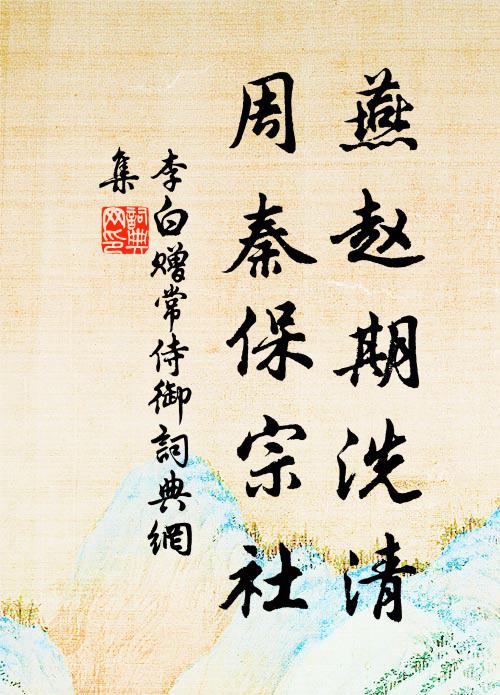 燕赵期洗清
周秦保宗社
李白赠常侍御詞典網
集
詞典
网印